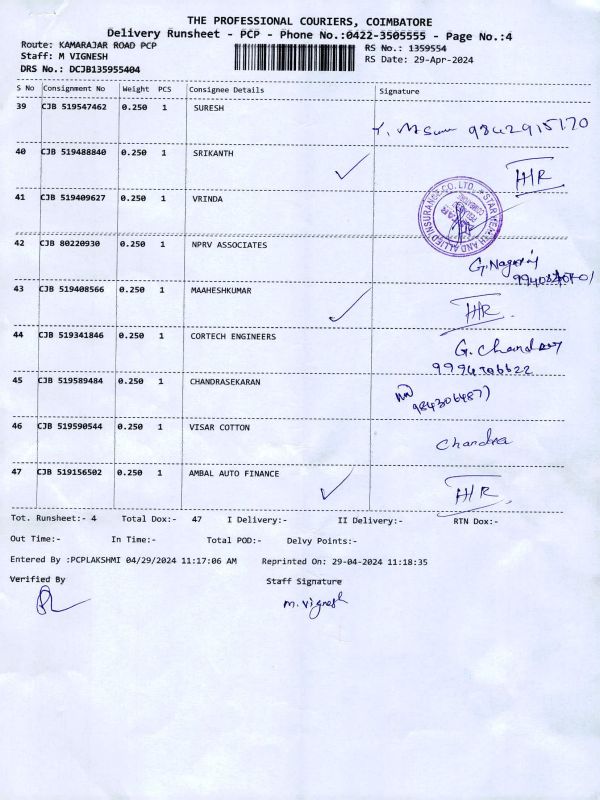 THE PROFESSIONAL COURIERS, COIMBATORE
Delivery Runsheet - PCP - Phone No.:0422-3505555 - Page No.:4
Route: KAMARAJAR ROAD PCP
RS No.: 1359554
Staff: M VIGNESH
RS Date: 29-Apr-2024
DRS No.: DCJB135955404
S No Consignment No Weight PCS Consignee Details Signature
39 CJB 519547462 0.250 1 SURESH
9842915170
40 CJB 519488840 0.250 1 SRIKANTH
H/R
41 CJB 519409627 0.250 1 VRINDA
STAR HEALTH AND ALLIED INSURANCE CO. LTD.
42 CJB 80220930 0.250 1 NPRV ASSOCIATES
G. Nagaraj
43 CJB 519408566 0.250 1 MAAHESHKUMAR
H/R
44 CJB 519341846 0.250 1 CORTECH ENGINEERS
G. Chandran
45 CJB 519589484 0.250 1 CHANDRASEKARAN
46 CJB 519590544 0.250 1 VISAR COTTON
Chandra
47 CJB 519156502 0.250 1 AMBAL AUTO FINANCE
H/R
Tot. Runsheet:- 4 Total Dox:- 47 I Delivery:- II Delivery:- RTN Dox:-
Out Time:- In Time:- Total POD:- Delvy Points:-
Entered By :PCPLAKSHMI 04/29/2024 11:17:06 AM Reprinted On: 29-04-2024 11:18:35
Verified By Staff Signature
M. Vignesh